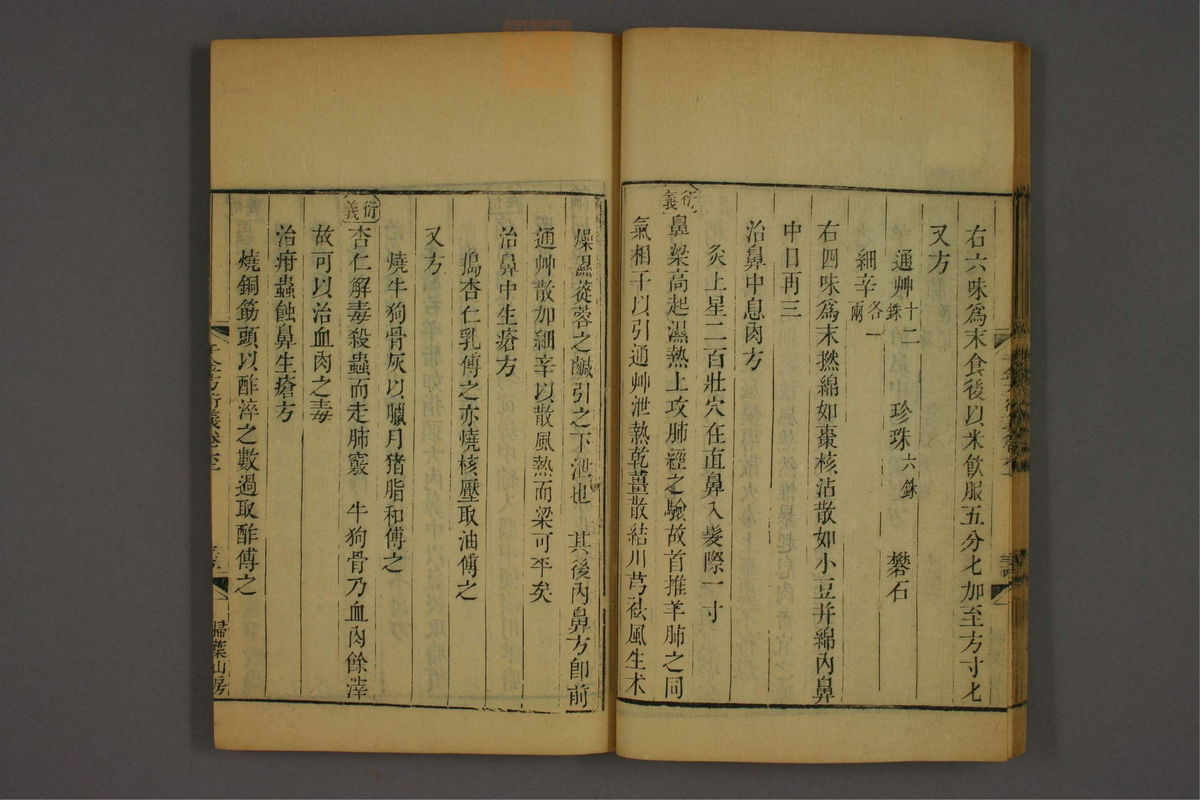 右六味爲末食後以米飲服五分匕加至方寸匕
又方
通艸十二銖 珍珠六銖 礬石
細辛各一兩
右四味爲末撚綿如棗核沾散如小豆并綿內鼻
中日再三
治鼻中息肉方
灸上星二百壯穴在直鼻入髮際一寸
衍義
鼻梁高起濕熱上攻肺經之驗故首推羊肺之同
氣相干以引通艸泄熱乾薑散結川芎祛風生朮
燥濕蓯蓉之鹹引之下泄也 其後內鼻方卽前
通艸散加細辛以散風熱而梁可平矣
治鼻中生瘡方
搗杏仁乳傅之亦燒核壓取油傅之
又方
燒牛狗骨灰以臘月猪脂和傅之
衍義
杏仁解毒殺蟲而走肺竅 牛狗骨乃血肉餘滓
故可以治血肉之毒
治疳蟲蝕鼻生瘡方
燒銅筯頭以酢淬之數過取酢傅之
掃葉山房